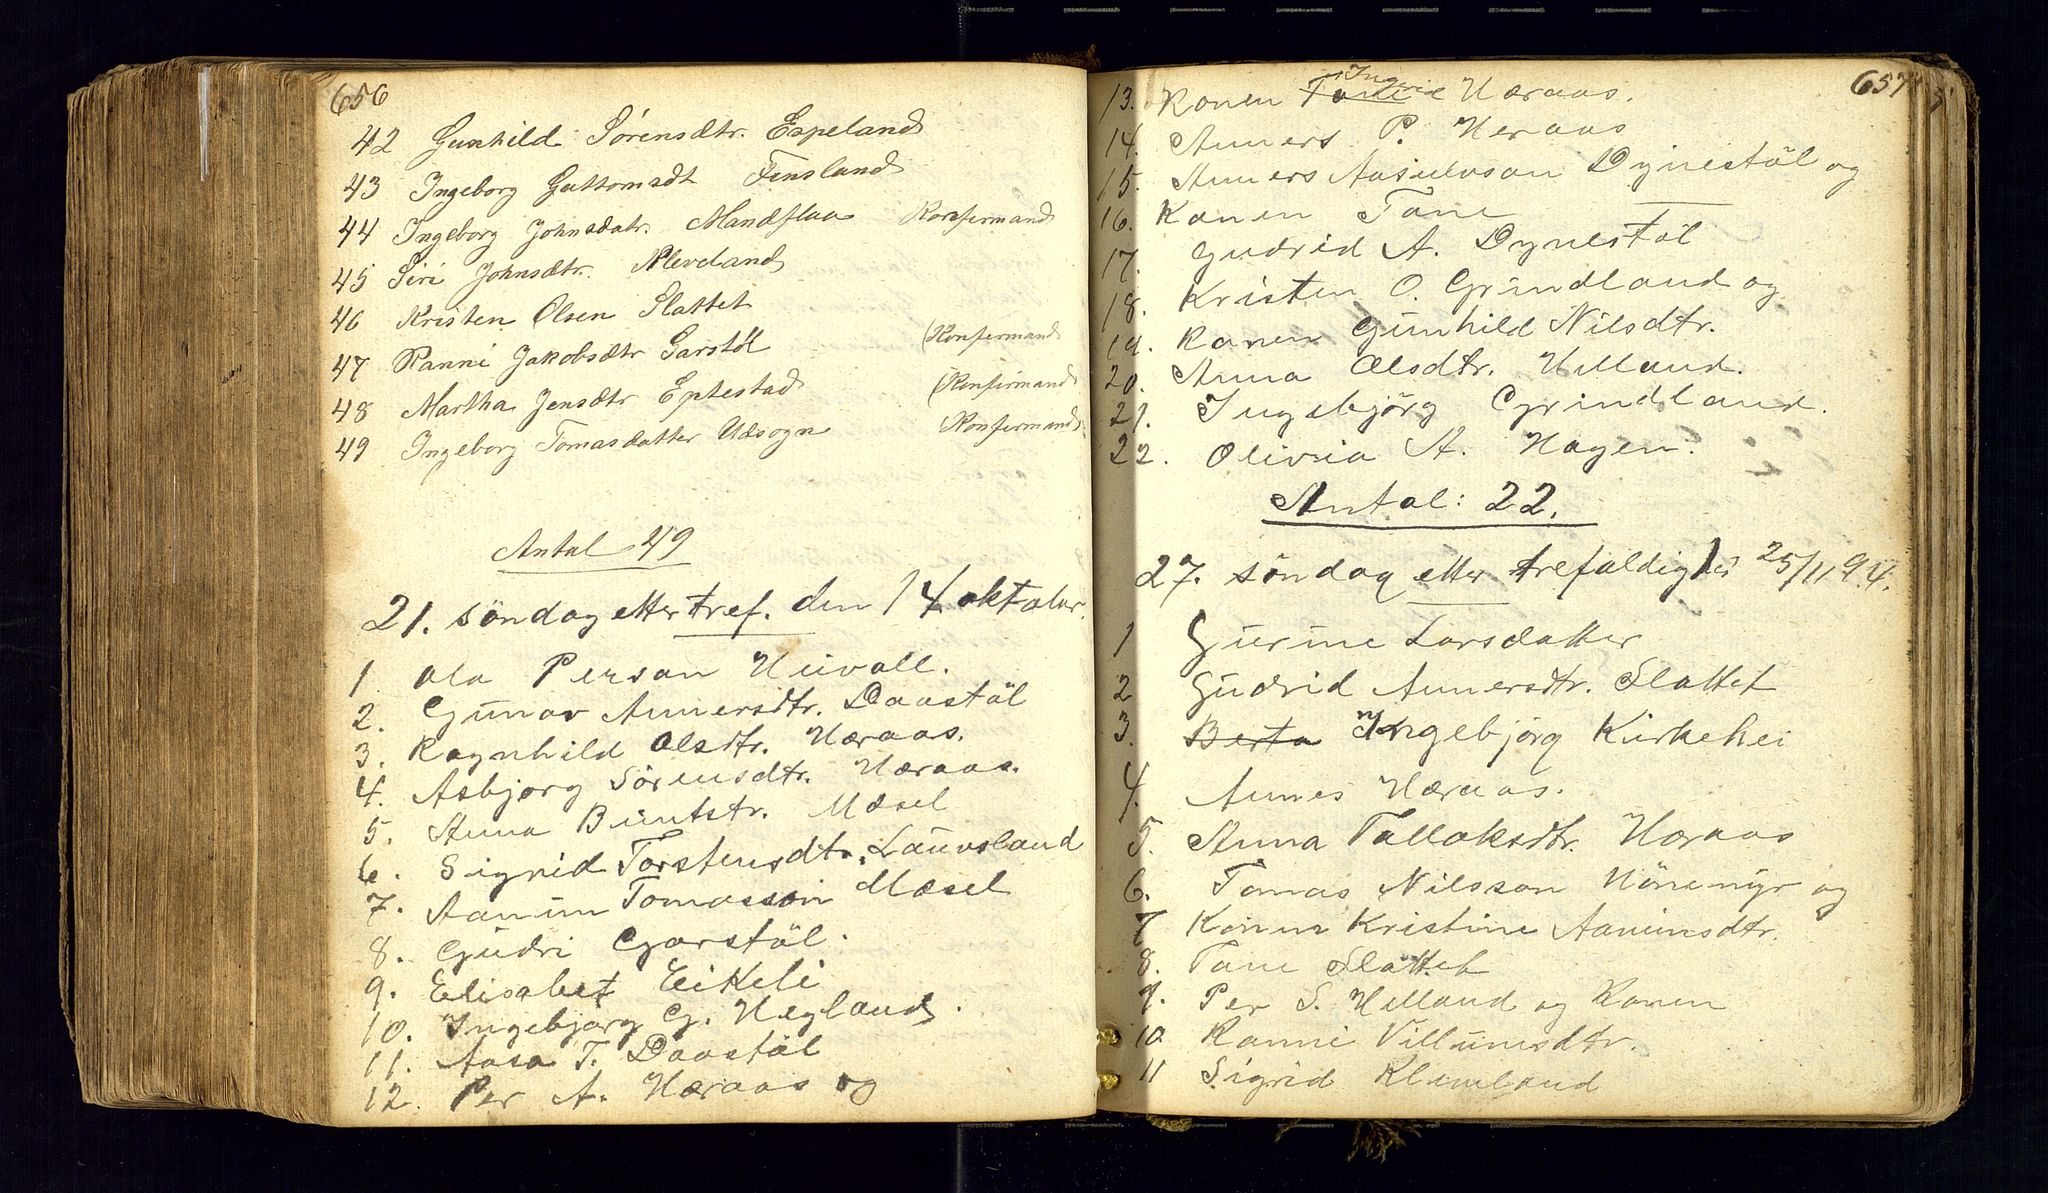 656
42 Gunhild Sørensdtr. Espeland
43 Ingeborg Guttomsdt Finsland
44 Ingeborg Johnsdatr. Mandflaa Konfirmand
45 Siri Johnsdtr. Kleveland
46 Kristen Olsen Slattet
47 Ranni Jakobsdtr Garstøl (Konfirmand
48 Martha Jensdtr Eptestad (Konfirmand
49 Ingeborg Tomasdatter Udsogn (Konfirmand
Antal 49
21. søndag etter tref. den 14 oktober
1. Ola Person Heivoll.
2. Gunvor Annersdtr. Daastøl
3. Ragnhild Olsdtr. Hæraas.
4. Asbjørg Sørensdtr. Hæraas.
5. Anna Buntstr. Mæsel
6. Sigrid Torstensdtr. Lauvsland
7. Aanun Tomasson Mæsel
8. Gudri Garstøl.
9. Elisabet Eikeli
10. Ingebjørg G. Hegland.
11. Aasa T. Daastøl
12. Per A. Hæraas og
657
13. Konen Tone Ingri Hæraas.
14. Anners P. Heraas
15. Anners Aasulvson Dynestøl og
16. Konen Tone
17. Gudrid A. Dynestøl
18. Kristen O. Grindland og
19. Konen Gunhild Nilsdtr.
20. Anna Olsdtr. Helland.
21. Ingebjørg Grindland.
22. Olivia A. Hagen.
Antal: 22.
27. søndag etter trefoldighet 25/11 94.
1 Gurine Larsdatter
2 Gudrid Annersdtr. Slattet
3. Berta Ingebjørg Kirkehei
4. Annes Hæraas.
5. Anna Tallaksdtr. Hæraas
6. Tomas Nilsson Hønemyr og
7 Konen Kristine Aanunsdtr.
8. Tone Slattet
9. Per S. Helland og Konen
10 Ranni Villumsdtr.
11 Sigrid Kleveland